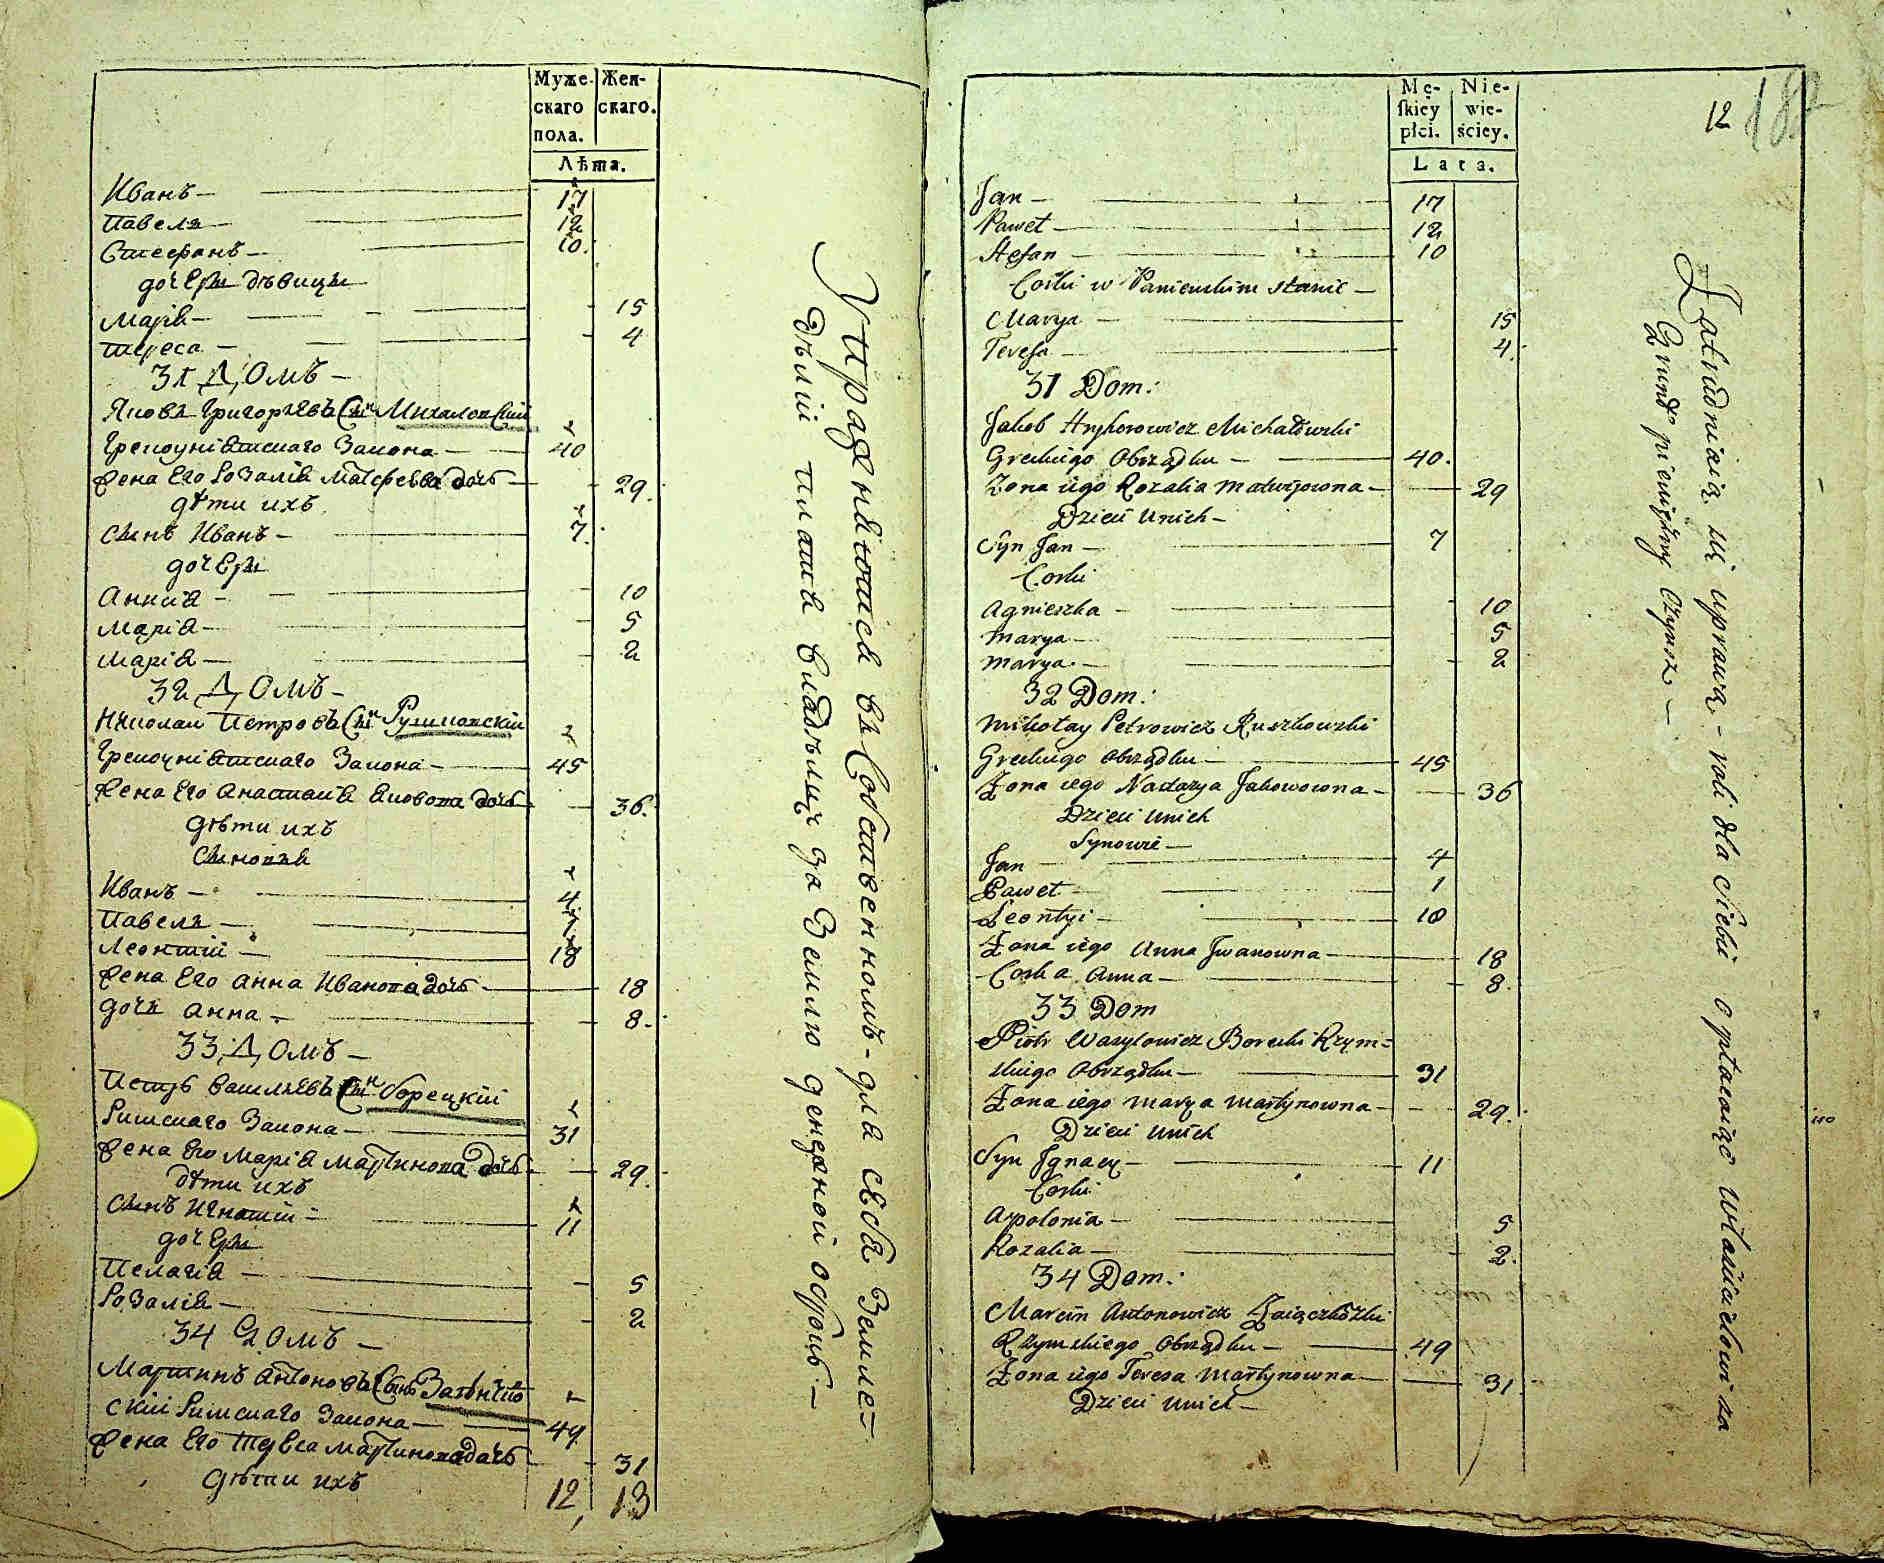 Муже- Жен-
скаго скаго.
пола.
Лѣта.
Иванъ — 17
Павелъ — 12
Стефанъ — 10
дочери дѣвицы
Марія — 15
Тереса — 4
31 Домъ —
Яковъ Григорьевъ Сынъ Михаловскій
Грекоуніятскаго Закона — 40
Жена Его Розалія Матфеева дочь — 29
дѣти ихъ
Сынъ Иванъ — 7
дочери
Анна — 10
Марія — 5
Марія — 2
32 Домъ —
Николай Петровъ Сынъ Рушковскій
Грекоуніятскаго Закона — 45
Жена Его Анастасія Яковова дочь — 36
дѣти ихъ
Сыновья
Иванъ — 4
Павелъ — 1
Леонтій — 18
Жена Его Анна Иванова дочь — 18
дочь Анна — 8
33 Домъ —
Петръ Васильевъ Сынъ Борецкій
Римскаго Закона — 31
Жена Его Марія Мартинова дочь — 29
дѣти ихъ
Сынъ Игнатій — 11
дочери
Пелагія — 5
Розалія — 2
34 Домъ —
Мартинъ Антоновъ Сынъ
скій Римскаго Закона — 49
Жена Его Тереса Мартинова дочь — 31
дѣти ихъ
12, 13
Упражняются въ Собственномъ — для себя земле=
дѣліи платя владѣльцу за Землю денежной оброкъ —
Mę- Nie-
skiey wie-
płci. ściey.
Lata.
12
182
Jan — 17
Paweł — 12
Stefan — 10
Corki w Panieńskim stanie —
Marya — 15
Teresa — 4
31 Dom:
Jakob Hryhorowicz Michałowski
Greckiego Obrządku — 40
Zona iego Rozalia Matwijowna — 29
Dzieci u nich —
Syn Jan — 7
Corki
Agnieszka — 10
Marya — 5
Marya — 2
32 Dom:
Mikołay Petrowicz Ruszkowski
Greckiego Obrządku — 45
Zona iego Nastazya Jakowowna — 36
Dzieci u nich
Synowie —
Jan — 4
Paweł — 1
Leontyi — 18
Zona iego Anna Jwanowna — 18
Corka Anna — 8
33 Dom
Piotr Wasylowicz Borecki Rzym=
skiego Obrządku — 31
Zona iego Marya Martynowna — 29
Dzieci u nich
Syn Jgnacy — 11
Corki
Apolonia — 5
Rozalia — 2
34 Dom:
Marcin Antonowicz
Rzymskiego Obrządku — 49
Zona iego Teresa Martynowna — 31
Dzieci u nich —
Zatrudniaią się uprawą — roli dla siebie opłacaiąc Włascicielowi za
Grunt pieniężny Czynsz —